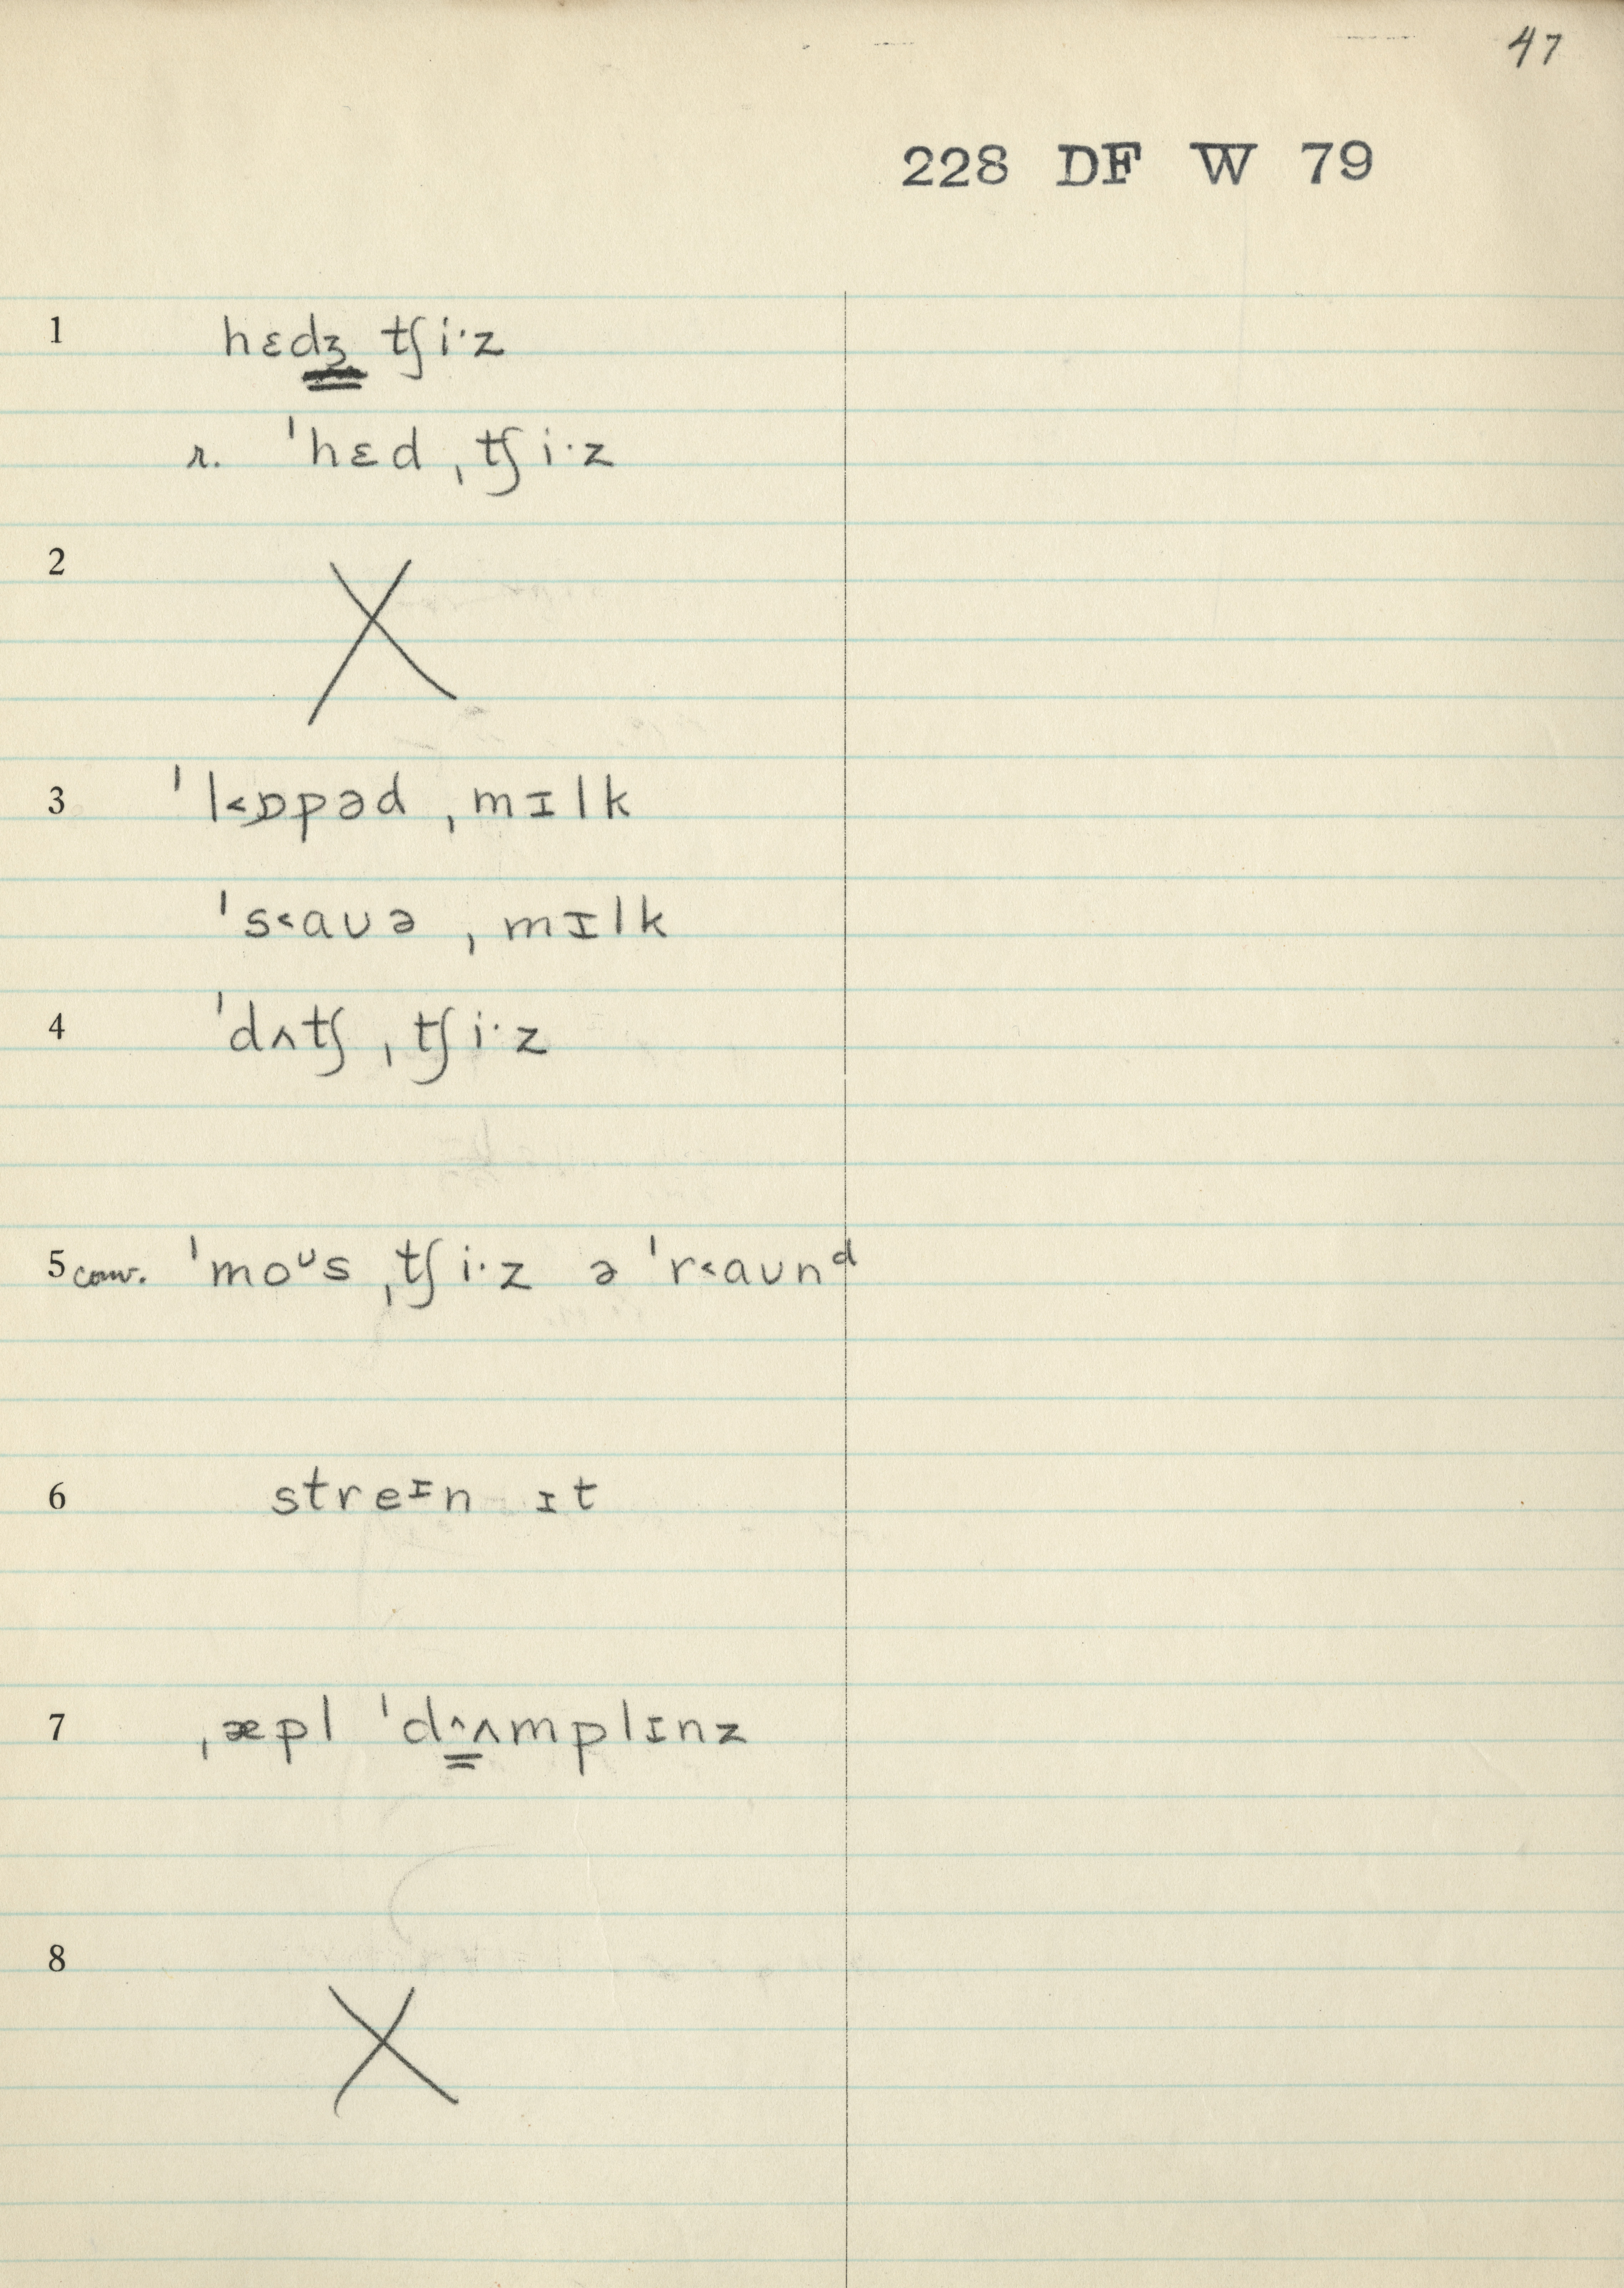 47
228 DF W 79
1 hɛdʒ tʃiˑz
r. ˈhɛd ˌtʃiˑz
2 X
3 ˈl˂ɒpəd ˌmɪlk
ˈs˂aʊə ˌmɪlk
4 ˈdʌtʃ ˌtʃiˑz
5 conv. ˈmoᶷs ˌtʃiˑz ə ˈr˂aʊnᵈ
6 streᶦn ɪt
7 ˌæpl ˈd˄ʌmplɪnz
8 X